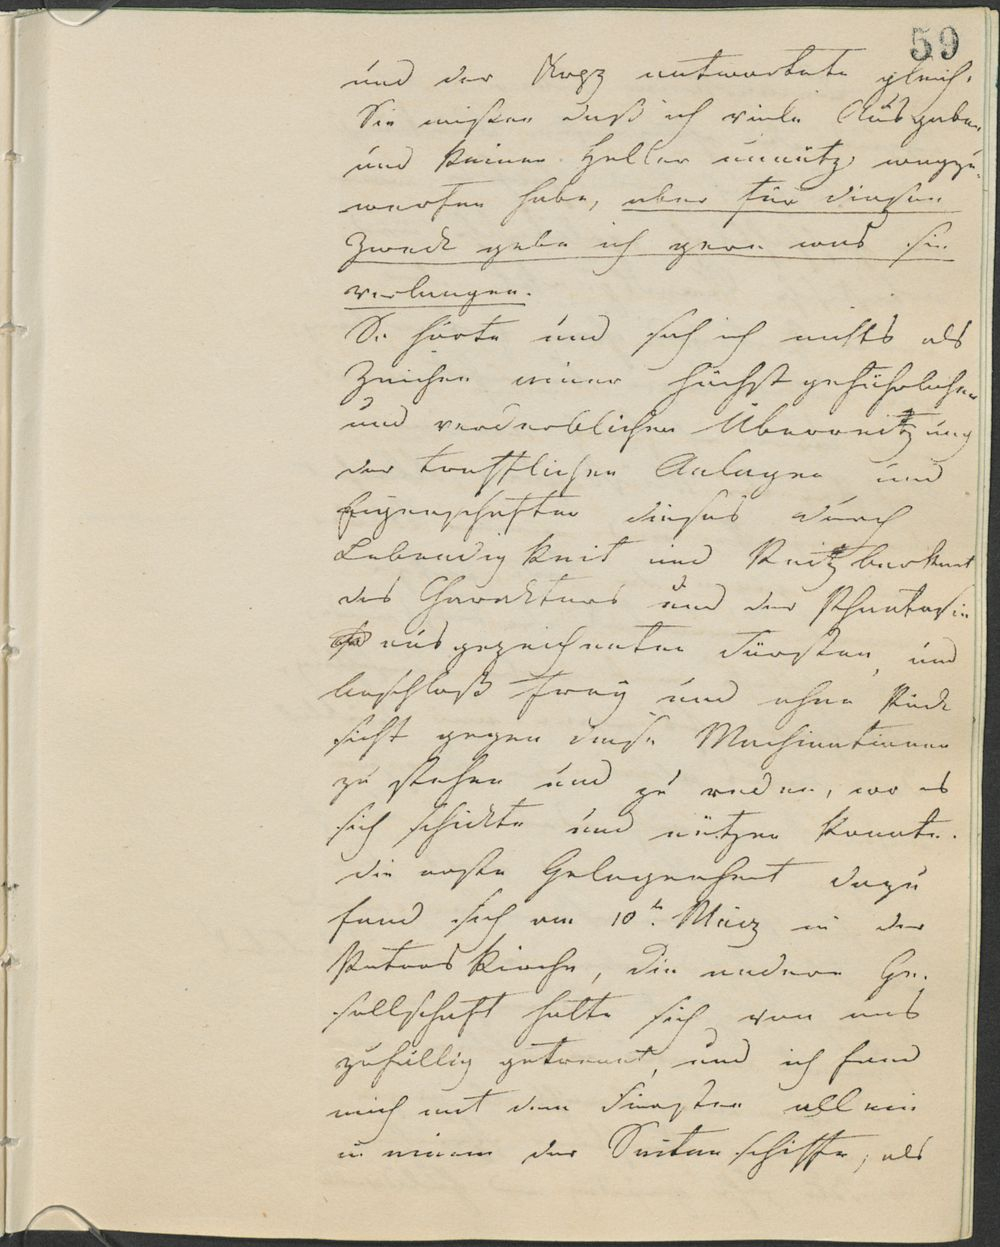 59
und der Krpz antwortete gleich.
Sie wißen daß ich viele Ausgaben
und keinen Heller unnütz wegzu-
werfen habe, aber für diesen
Zweck gebe ich gern was sie
verlangen.
So hörte und sah ich nichts als
Zeichen einer höchst gefährlichen
und verderblichen Überreitzung
der trefflichen Anlagen und
Eigenschaften dieses durch
Lebendigkeit und Reitzbarkeit
des Charakters und der Phantasie
ausgezeichneten Fürsten, und
beschloß frey und ohne Rück
sicht gegen diese Machinationen
zu stehen und zu reden, wo es
sich schickte und nützen konnte.
Die erste Gelegenheit dazu
fand sich am 10t. März in der
Peterskirche, die andere Ge-
sellschaft hatte sich von uns
zufällig getrennt, und ich fand
mich mit dem Fürsten allein
in einem der Seitenschiffe, als